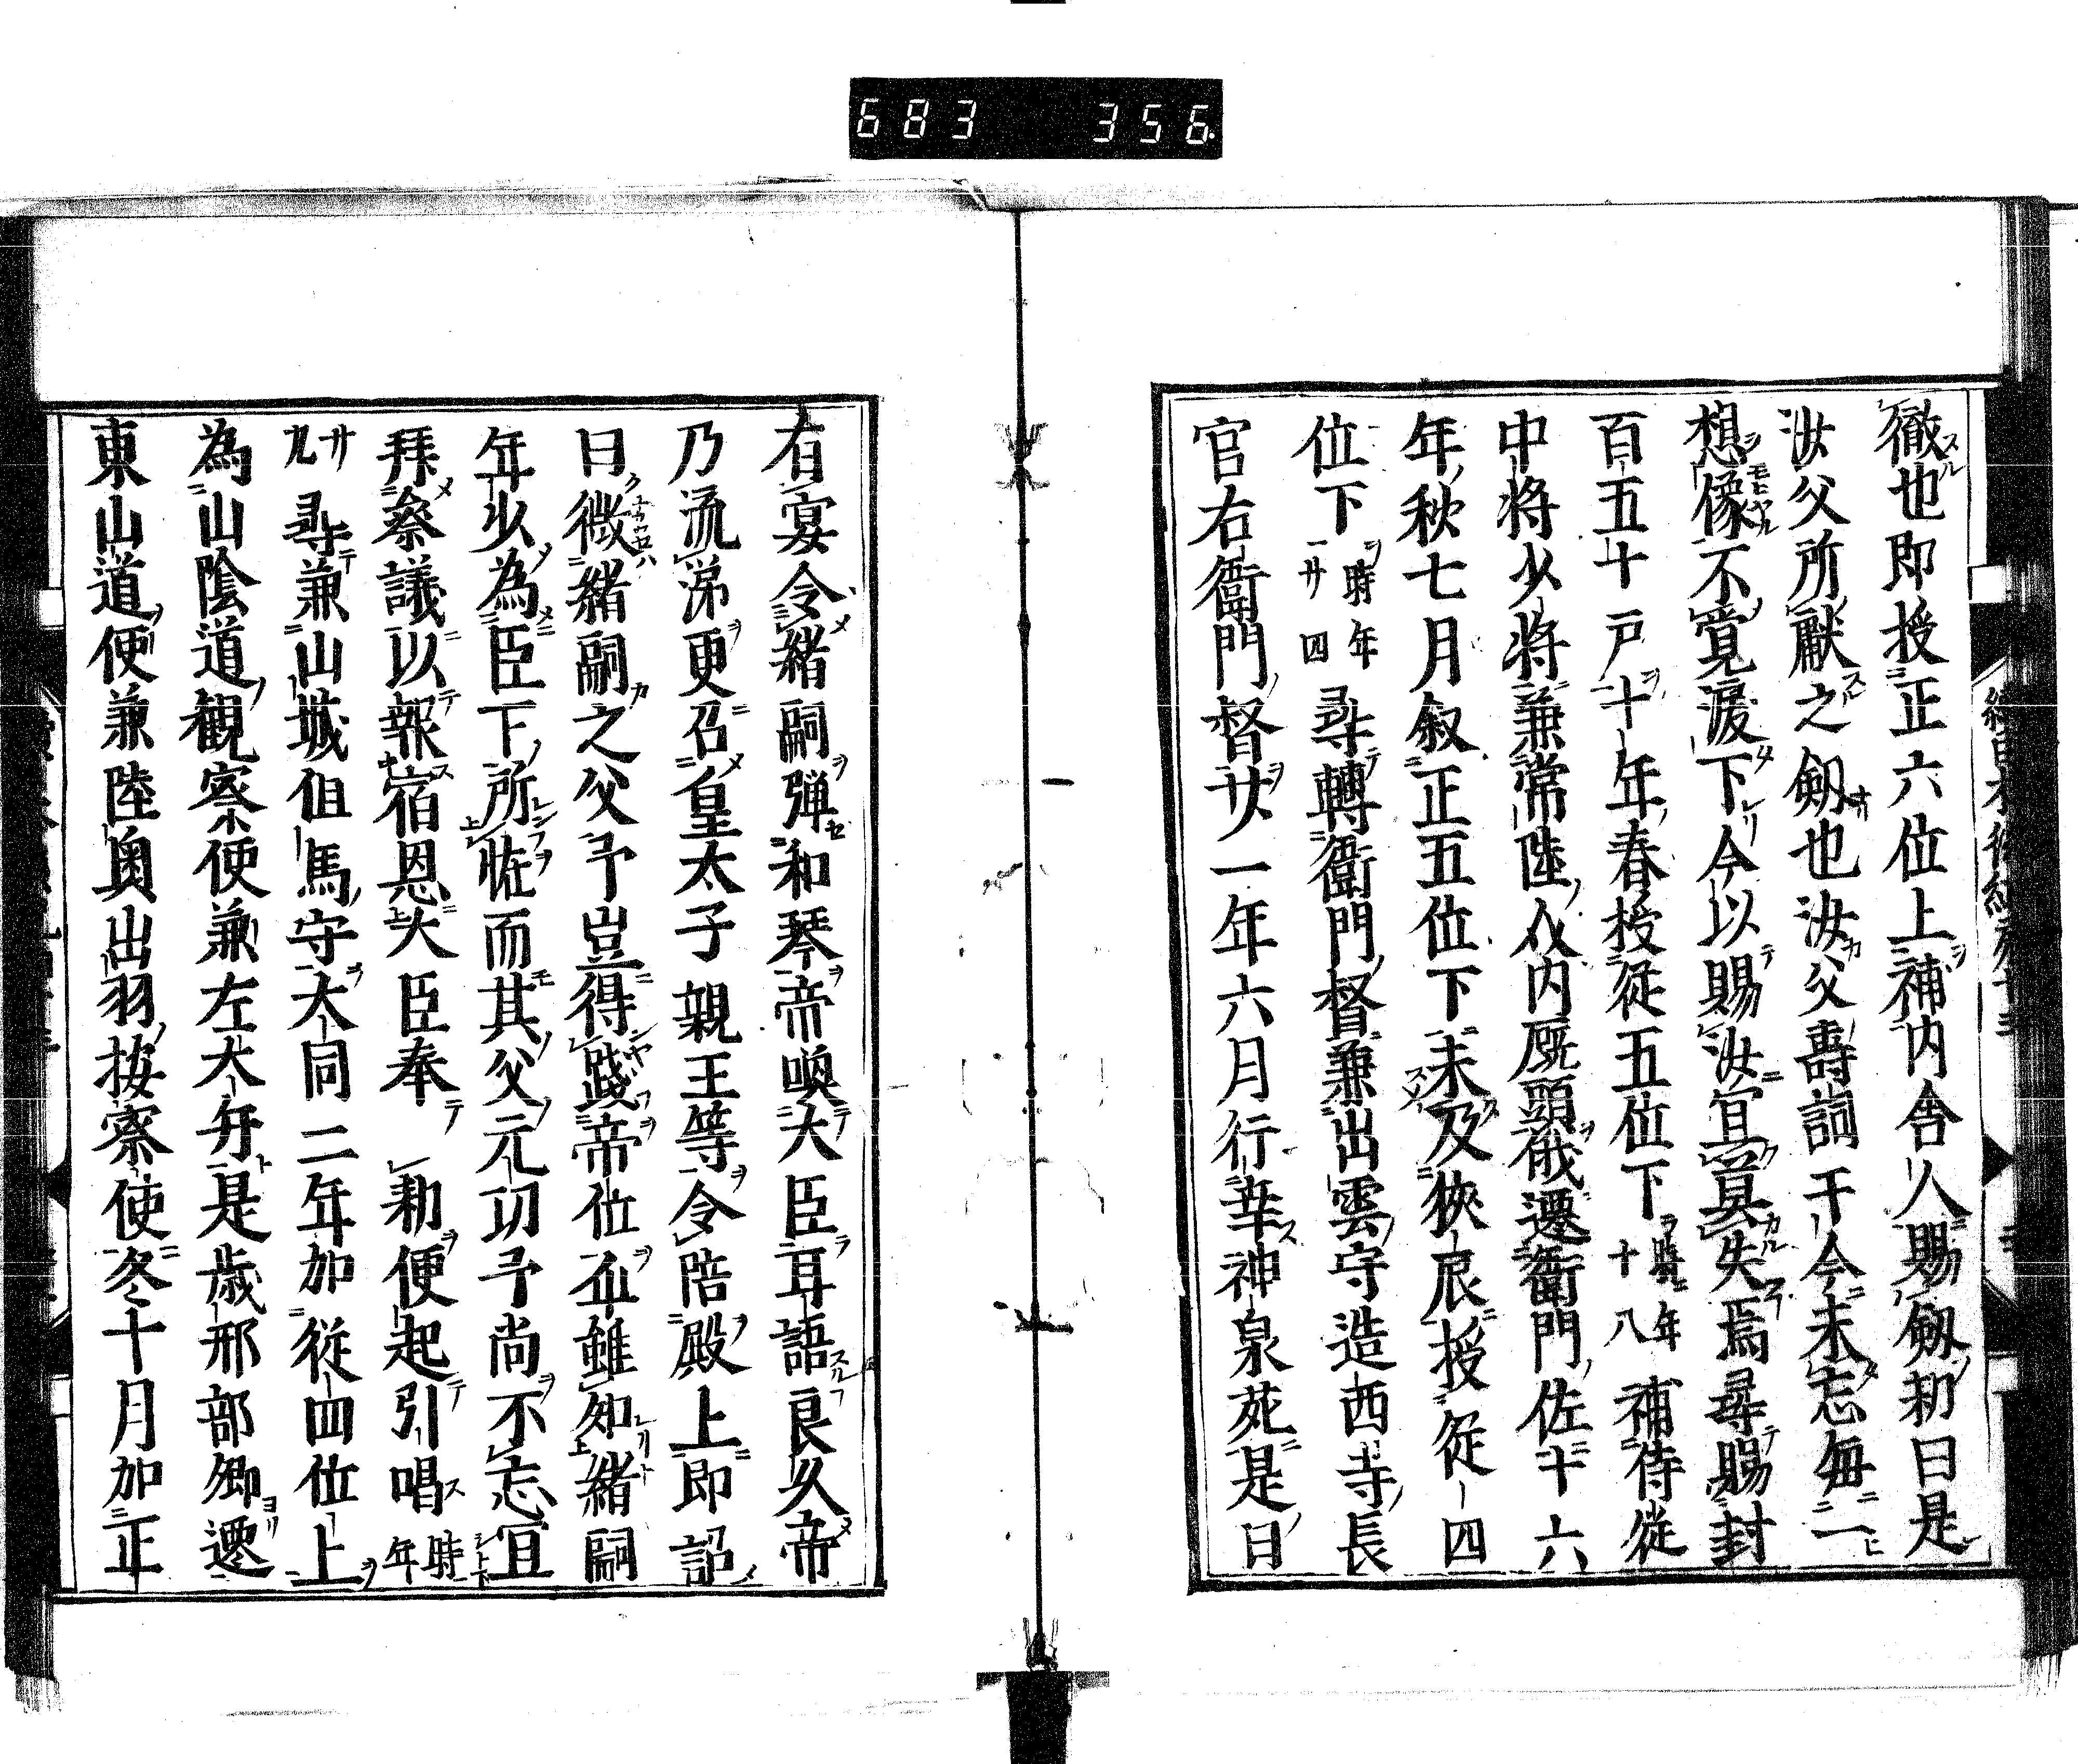 683 356
徹也即授正六位上補内舎人賜劔勅曰是
汝父所獻之劔也汝父壽詞于今未忘毎一
想像不覚涙下今以賜汝宜莫失焉尋賜封
百五十戸十年春授從五位下時年十八補侍從
中将少将兼常陸介内厩頭俄遷衛門佐十六
年秋七月叙正五位下未及狹辰授從四
位下時年廿四尋轉衛門督兼出雲守造西寺長
官右衛門督廿一年六月行幸神泉苑是日
有宴令緒嗣弾和琴帝喚大臣耳語良久帝
乃流涕更召皇太子親王等令陪殿上即詔
曰微緒嗣之父予豈得踐帝位乎雖知緒嗣
年少為臣下所恠而其父元功予尚不忘宜
拜叅議以報宿恩大臣奉勅便起引唱時年
廿九尋兼山城但馬守大同二年加從四位上
為山陰道観察使兼左大弁是歳邢部卿遷
東山道使兼陸奥出羽按察使冬十月加正